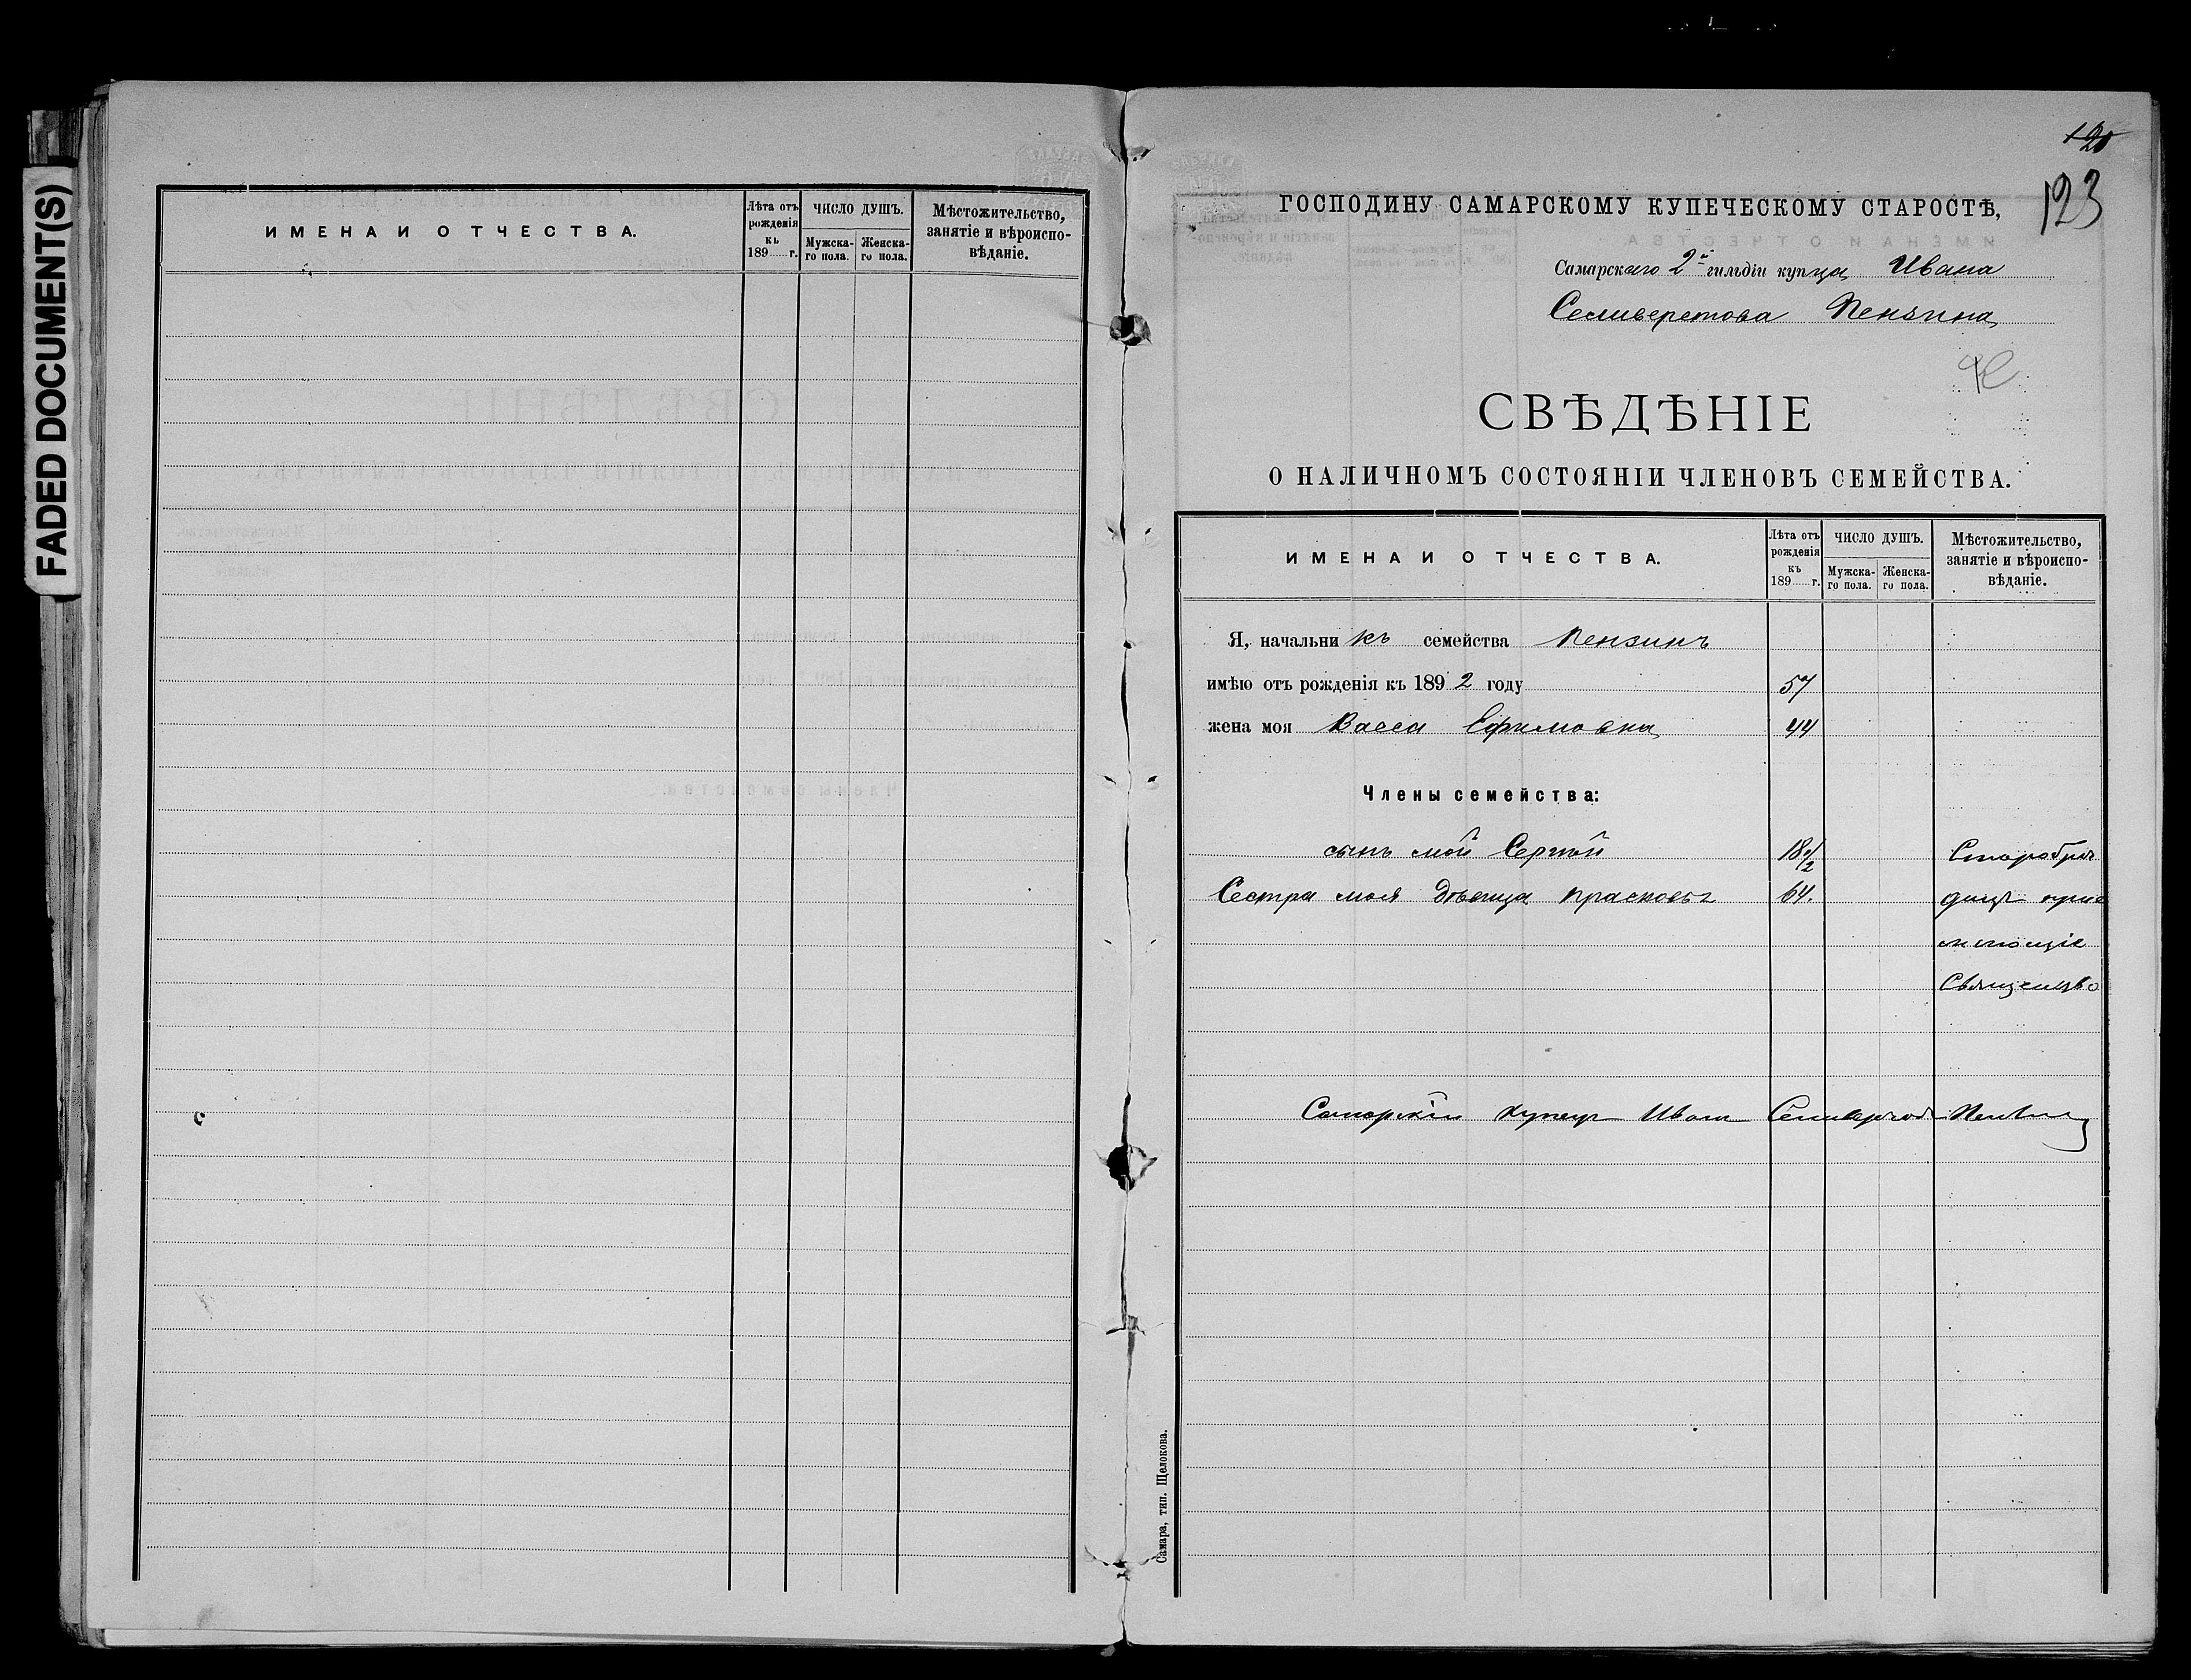 FADED DOCUMENT(S)
ИМЕНА И ОТЧЕСТВА.
Лѣта отъ рожденія къ 189 г.
ЧИСЛО ДУШЪ.
Мужска-го пола.
Женска-го пола.
Мѣстожительство, занятіе и вѣроиспо-вѣданіе.
120
123
ГОСПОДИНУ САМАРСКОМУ КУПЕЧЕСКОМУ СТАРОСТѢ,
Самарскаго 2й гильдіи купца Ивана
Селиверстова Пензина
СВѢДѢНІЕ
О НАЛИЧНОМЪ СОСТОЯНІИ ЧЛЕНОВЪ СЕМЕЙСТВА.
ИМЕНА И ОТЧЕСТВА.
Лѣта отъ рожденія къ 189 г.
ЧИСЛО ДУШЪ.
Мужска-го пола.
Женска-го пола.
Мѣстожительство, занятіе и вѣроиспо-вѣданіе.
Я, начальникъ семейства Пензинъ
имѣю отъ рожденія къ 1892 году 57
жена моя Васса Ефимовна 44
Члены семейства:
сынъ мой Сергѣй 18 1/2 Старобря
Сестра моя дѣвица Прасковья 64. дцы прие
млющіе
Священство
Самарскій купецъ Иванъ Селиверстовъ Пензинъ
Самара, тип. Щелокова.